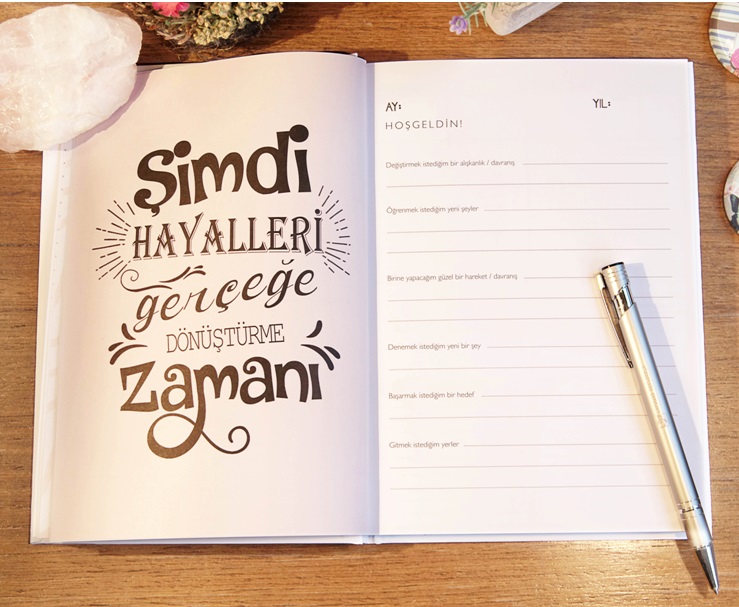 Şimdi
HAYALLERİ
gerçeğe
DÖNÜŞTÜRME
zamanı
AY: YIL:
HOŞGELDİN!
Değiştirmek istediğim bir alışkanlık / davranış
Öğrenmek istediğim yeni şeyler
Birine yapacağım güzel bir hareket / davranış
Denemek istediğim yeni bir şey
Başarmak istediğim bir hedef
Gitmek istediğim yerler